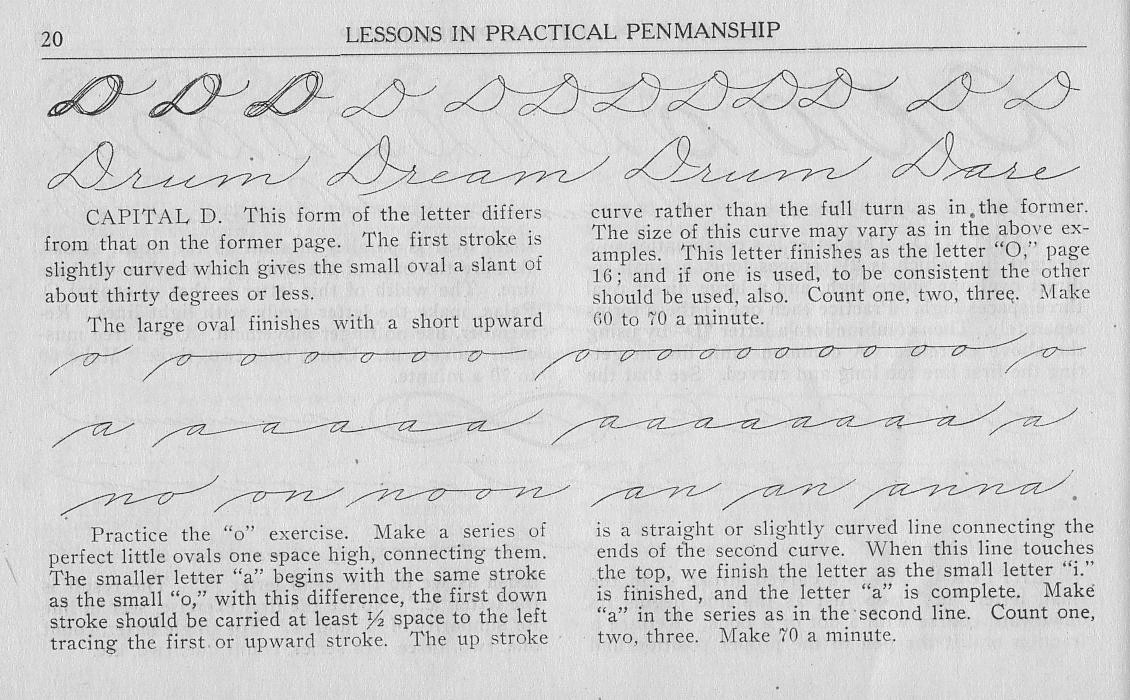 20
LESSONS IN PRACTICAL PENMANSHIP
D D D D D D D D D D D D
Drum Dream Drum Dare
CAPITAL D. This form of the letter differs
from that on the former page. The first stroke is
slightly curved which gives the small oval a slant of
about thirty degrees or less.
The large oval finishes with a short upward
curve rather than the full turn as in the former.
The size of this curve may vary as in the above ex-
amples. This letter finishes as the letter “O,” page
16; and if one is used, to be consistent the other
should be used, also. Count one, two, three. Make
60 to 70 a minute.
o o o o o o o o o o o o o o o o o o
a a a a a a a a a a a a a a a
no on noon an an anna
Practice the “o” exercise. Make a series of
perfect little ovals one space high, connecting them.
The smaller letter “a” begins with the same stroke
as the small “o,” with this difference, the first down
stroke should be carried at least ½ space to the left
tracing the first or upward stroke. The up stroke
is a straight or slightly curved line connecting the
ends of the second curve. When this line touches
the top, we finish the letter as the small letter “i.”
is finished, and the letter “a” is complete. Make
“a” in the series as in the second line. Count one,
two, three. Make 70 a minute.